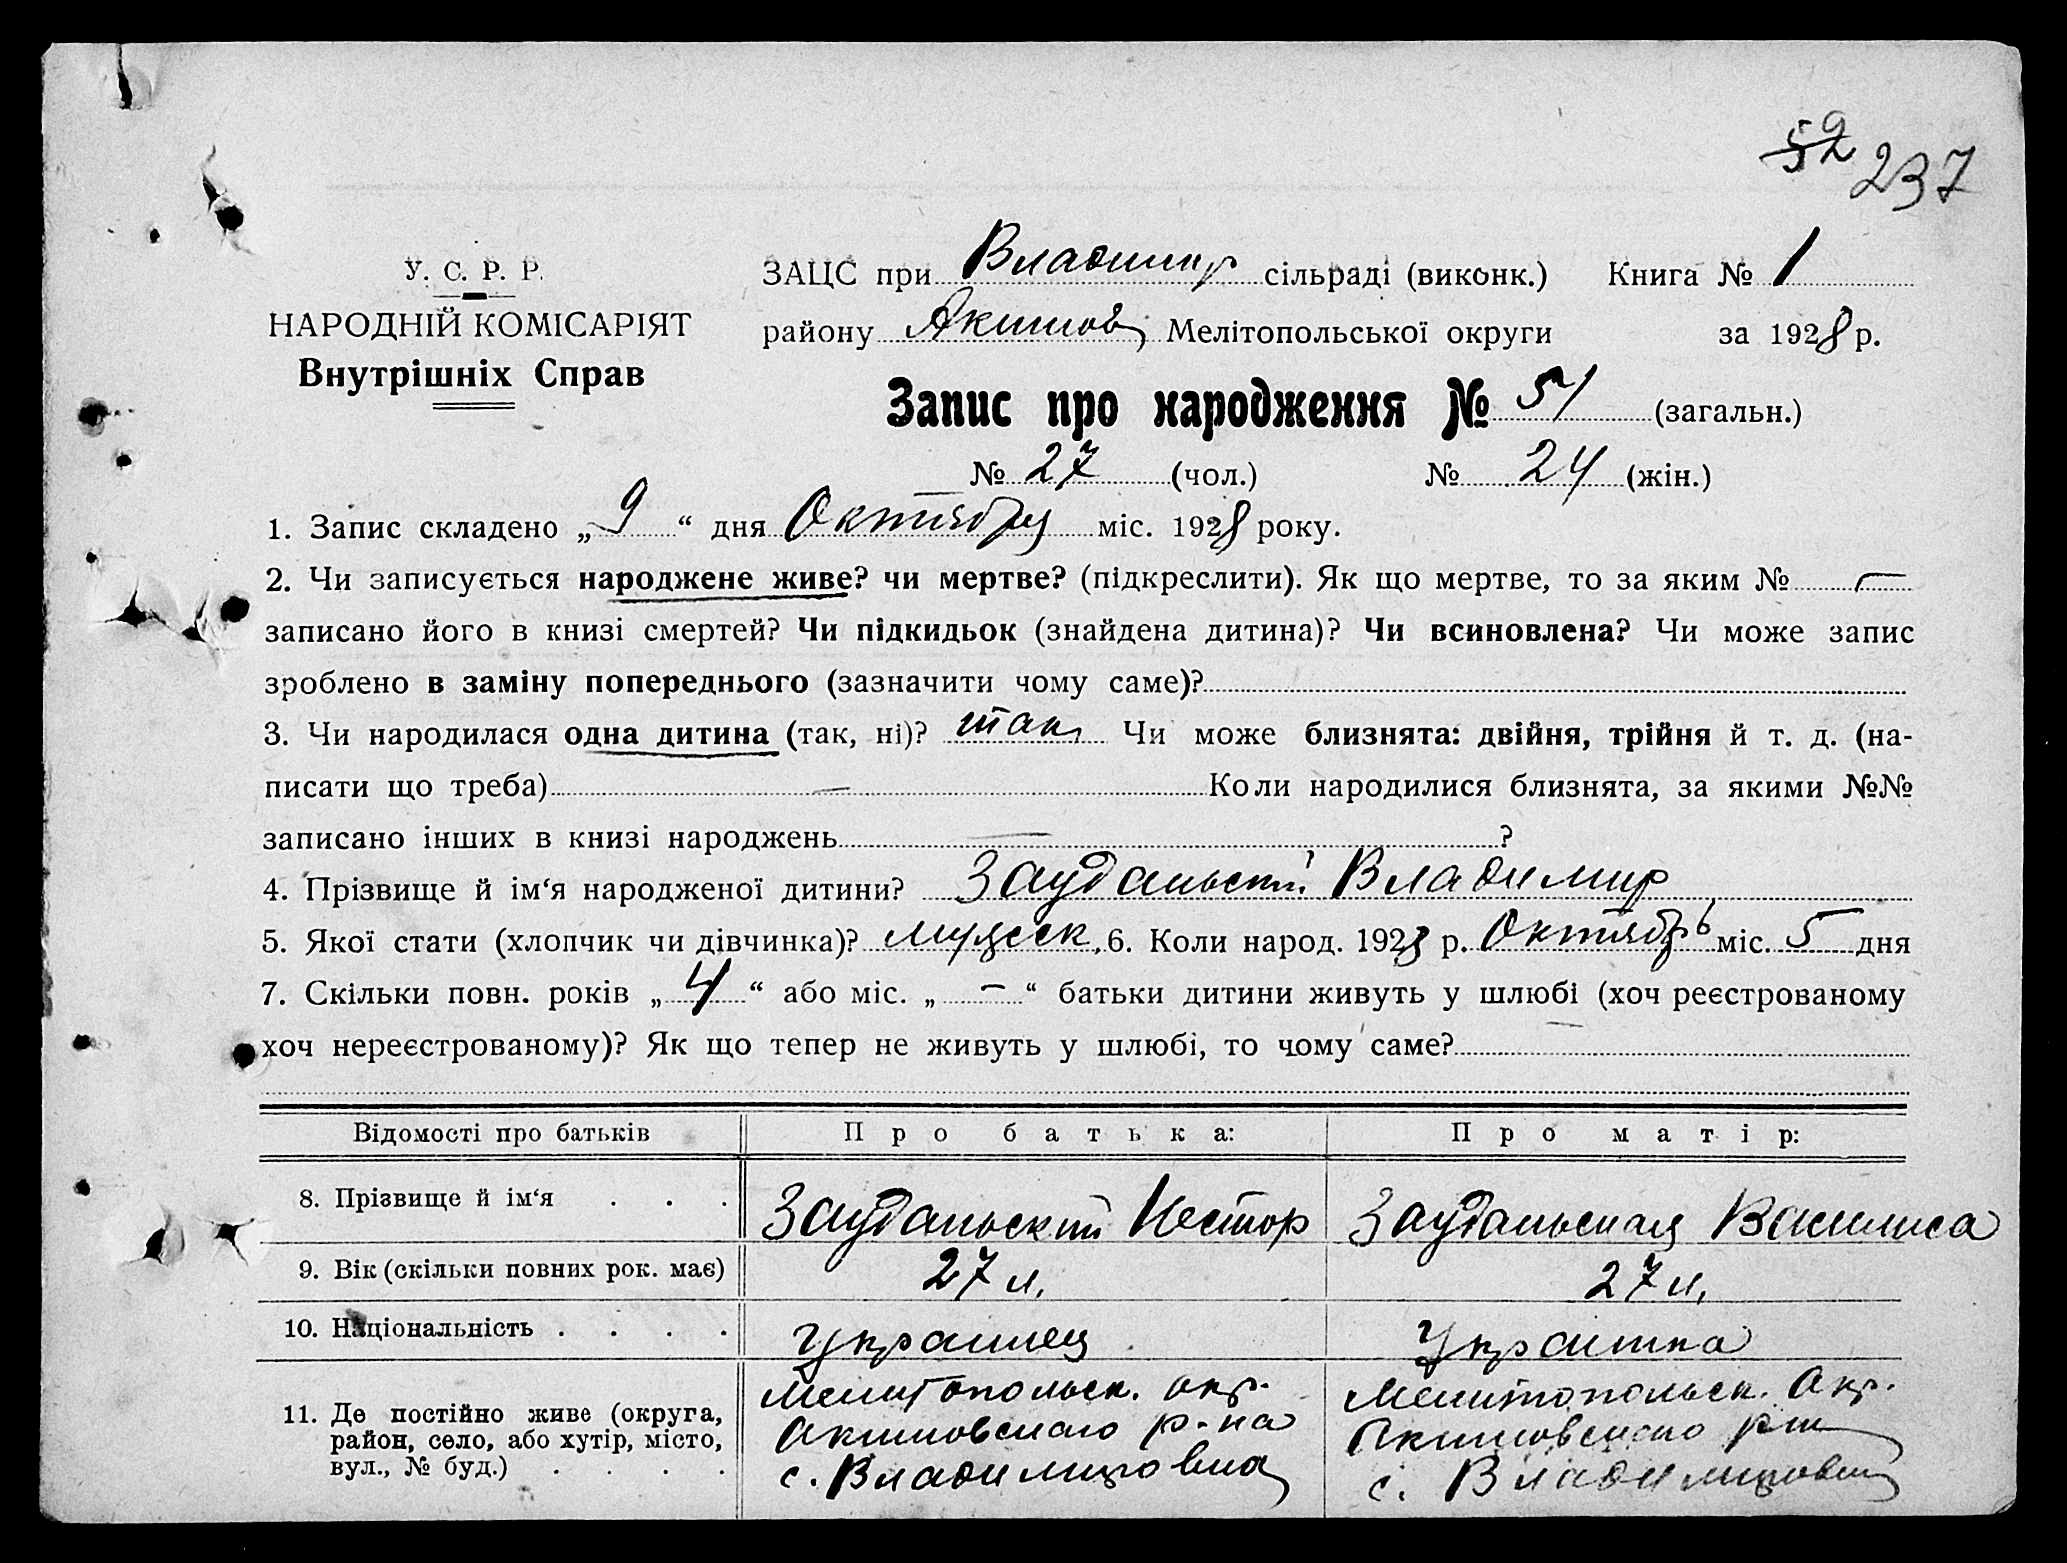 52 237
У. С. Р. Р.
НАРОДНІЙ КОМІСАРІЯТ
Внутрішніх Справ
ЗАЦС при Владимир сільраді (виконк.) Книга № 1
району Акимов Мелітопольської округи за 1928 р.
Запис про народження № 51 (загальн.)
№ 27 (чол.) № 24 (жін.)
1. Запис складено „ 9 “ дня Октября міс. 1928 року.
2. Чи записується народжене живе? чи мертве? (підкреслити). Як що мертве, то за яким № —
записано його в книзі смертей? Чи підкидьок (знайдена дитина)? Чи всиновлена? Чи може запис
зроблено в заміну попереднього (зазначити чому саме)?
3. Чи народилася одна дитина (так, ні)? так Чи може близнята: двійня, трійня й т. д. (на-
писати що треба) — Коли народилися близнята, за якими №№
записано інших в книзі народжень — ?
4. Прізвище й ім‘я народженої дитини? Заудальский Владимир
5. Якої стати (хлопчик чи дівчинка)? мужеск. 6. Коли народ. 1928 р. Октябрь міс. 5 дня
7. Скільки повн. років „ 4 “ або міс. „ — “ батьки дитини живуть у шлюбі (хоч реєстрованому
хоч нереєстрованому)? Як що тепер не живуть у шлюбі, то чому саме? —
Відомості про батьків Про батька: Про матір:
8. Прізвище й ім‘я . . . Заудальский Нестор Заудальская Василиса
9. Вік (скільки повних рок. має) 27 л. 27 л.
10. Національність . . . . Украинец Украинка
11. Де постійно живе (округа, район, село, або хутір, місто, вул., № буд.) . . . .
Мелитопольск. окр.
Акимовского р-на
с. Владимировка
Мелитопольск. Окр.
Акимовского р-на
с. Владимировка